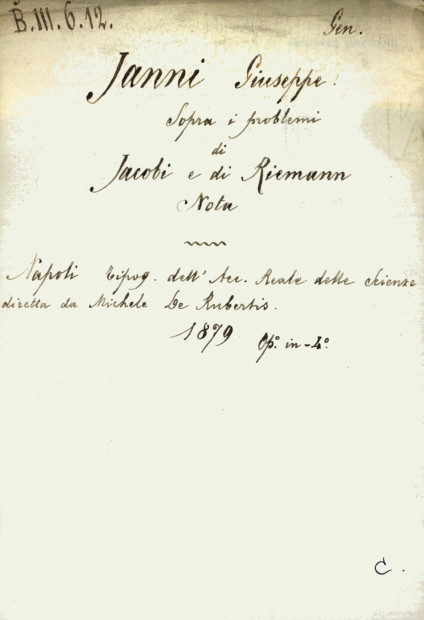 B.III.6.12.
Gen.
Janni Giuseppe.
Sopra i problemi
di
Jacobi e di Riemann
Nota
Napoli tipog. dell' Acc. Reale delle Scienze
diretta da Michele De Rubertis.
1879 Op.º in-4.º
C.